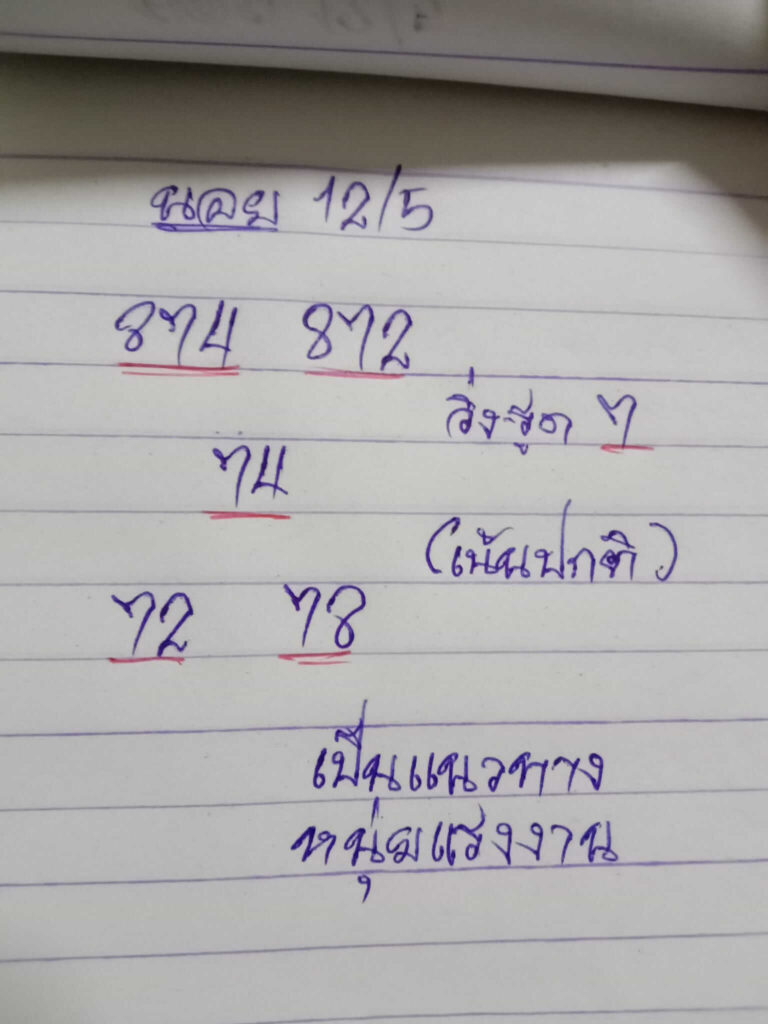 นอย 12/5
874 872
วิ่ง-รูด 7
74
(เน้นปกติ)
72 78
เป็นแนวทาง
หนุ่มแรงงาน